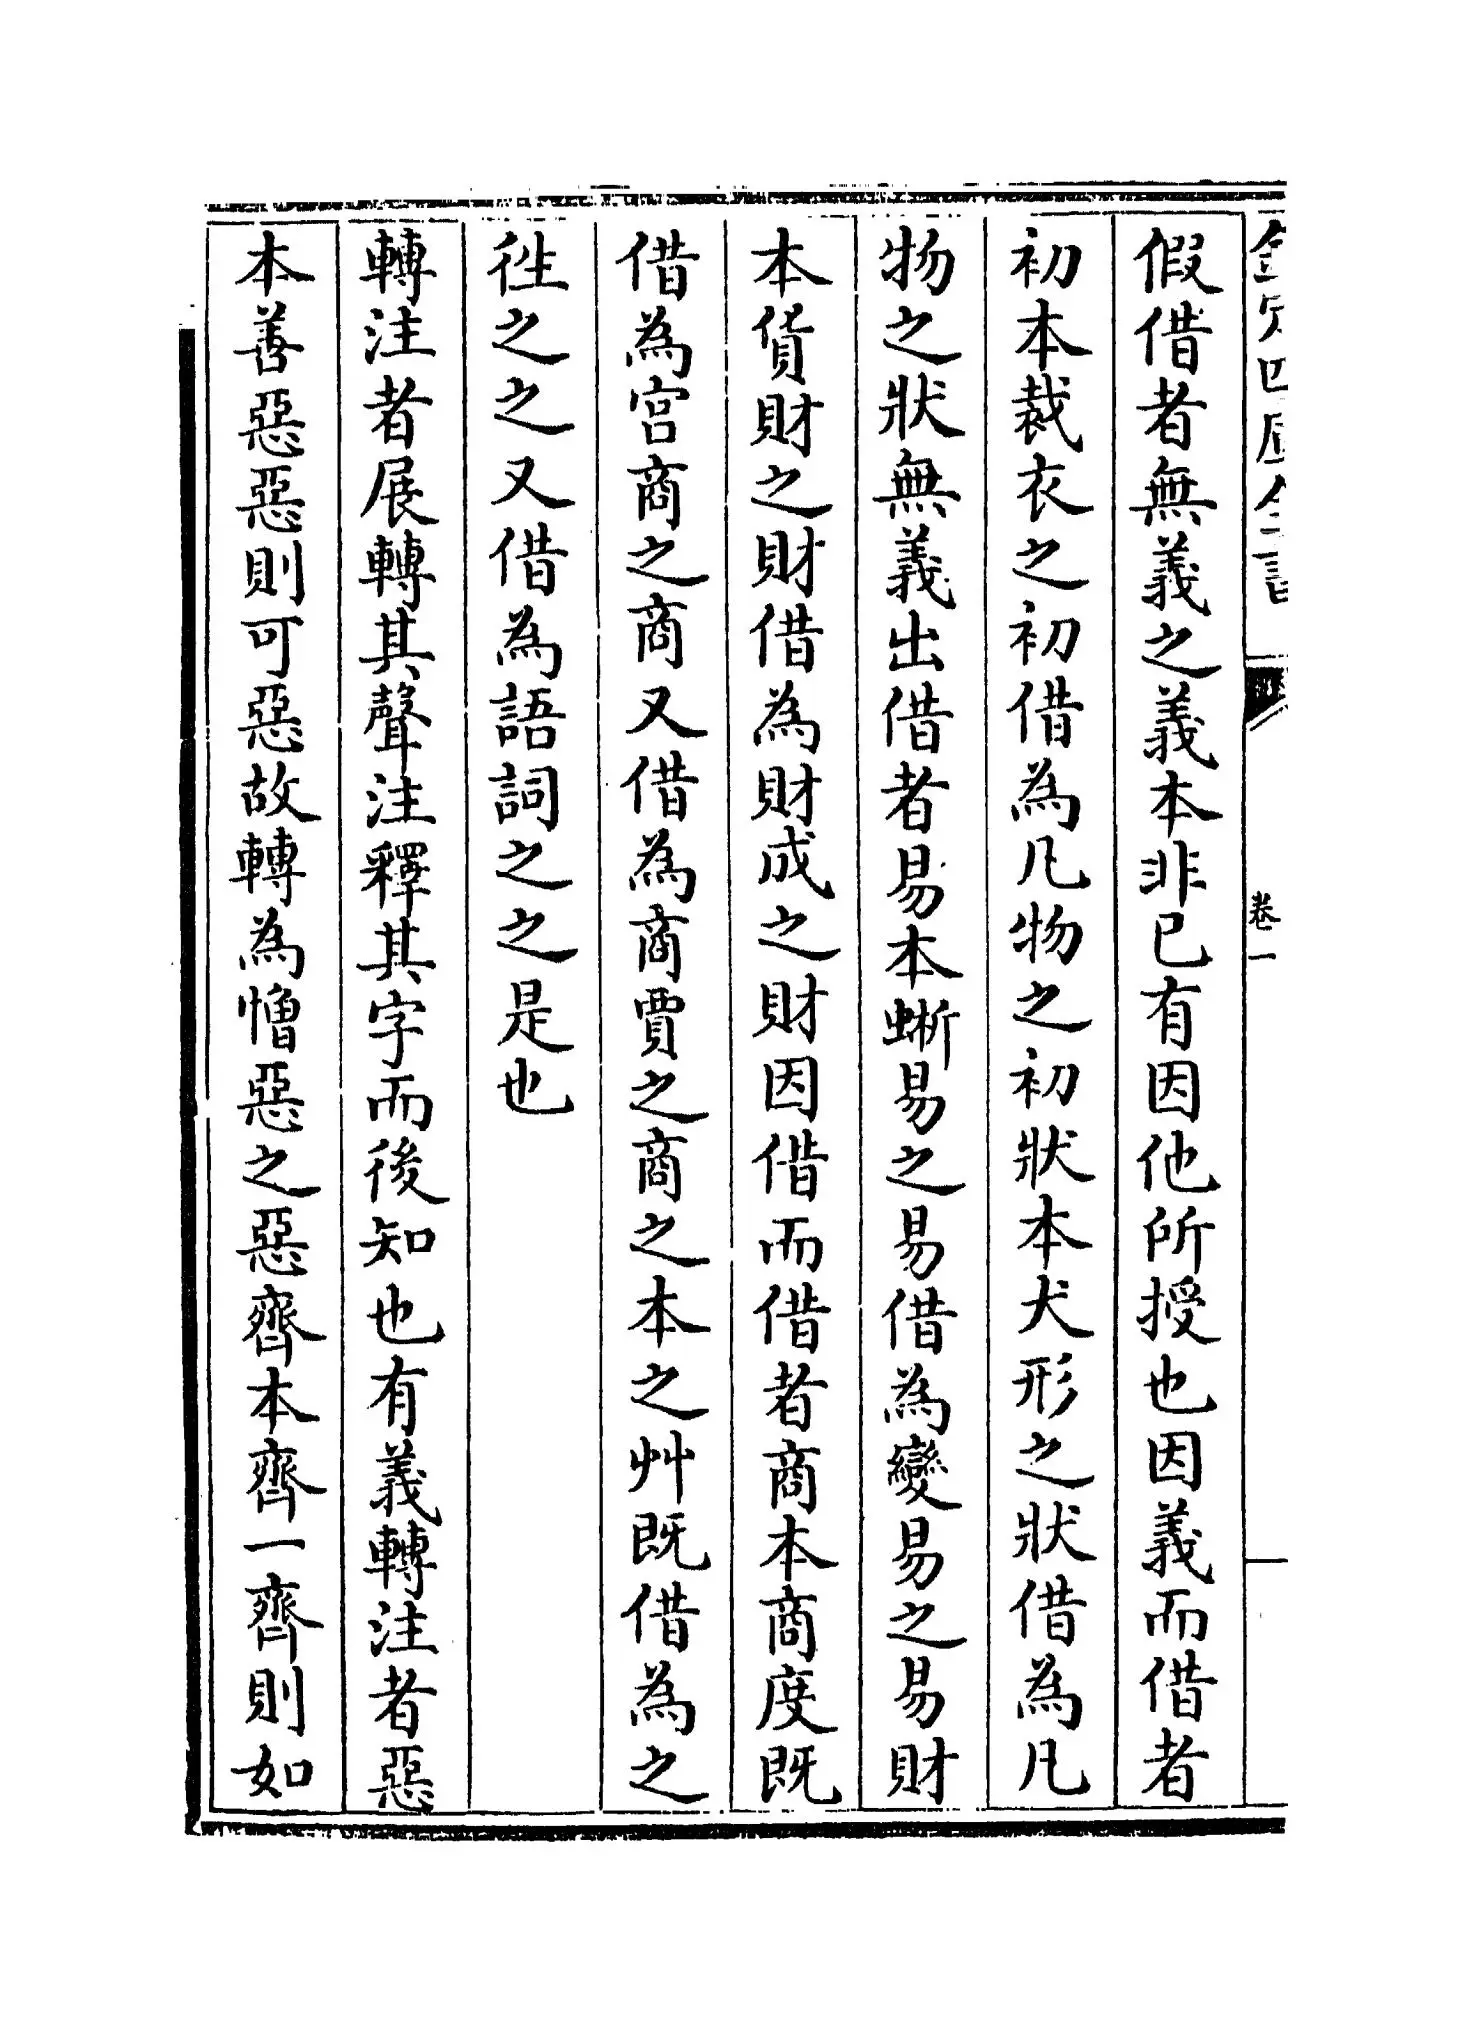 欽定四庫全書
卷一
假借者無義之義本非已有因他所授也因義而借者
初本裁衣之初借為凡物之初狀本犬形之狀借為凡
物之狀無義出借者易本蜥易之易借為變易之易財
本貨財之財借為財成之財因借而借者商本商度既
借為宮商之商又借為商賈之商之本之艸既借為之
徃之之又借為語詞之之是也
轉注者展轉其聲注釋其字而後知也有義轉注者惡
本善惡惡則可惡故轉為憎惡之惡齊本齊一齊則如